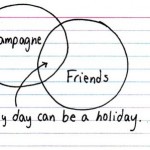 hampagne
Friends
y day can be a holiday.